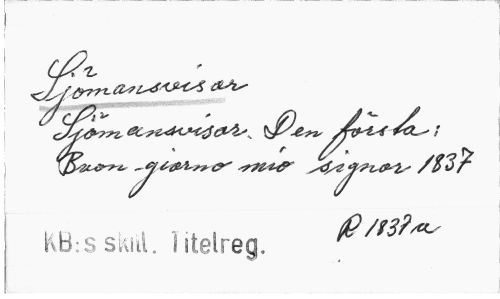 Sjömansvisor
Sjömansvisor. Den första:
Buon giorno mio signor 1837
R 1837 a
KB:s skill. Titelreg.